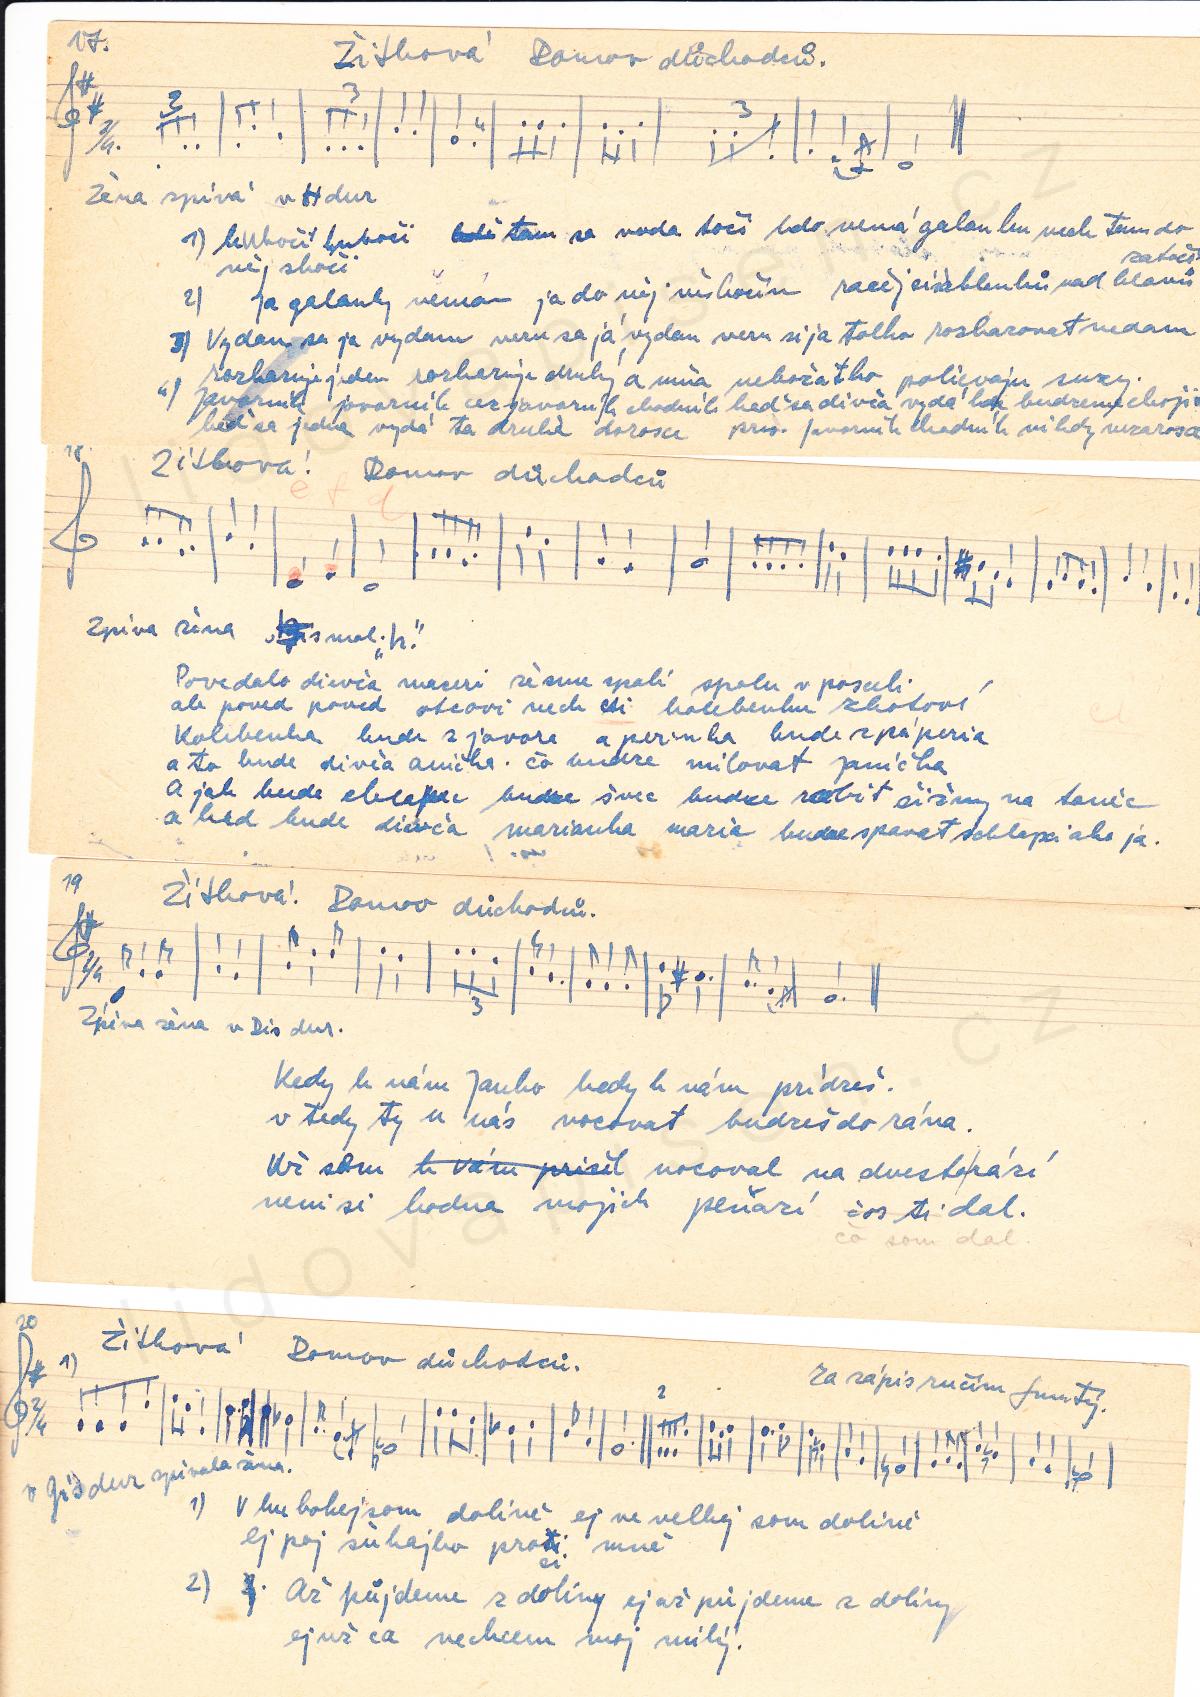 17.
Žítková Domov důchodců.
Žena spívá v H dur
1) huboči huboči tam sa voda točí kdo nemá galanku nech tam do
něj skočí
zatočí
2) ja galanky nemám ja do něj neskočím račej si nad hlavú
3) Vydam sa ja vydam veru sa já vydam veru si ja tolko rozkazovat nedam
rozkazuje jeden rozkazuje druhý a mňa nebožátko polievaju suzy.
4) javorník javorník cez javorník chodník keď sa divča vydá kde budzeme chojit
keď sa jedna vydá ta druhá dorosce pres javorník chodník nikdy nezarosce
18
Žítková! Domov důchodců
e f d
Zpívá žena mol „h"
Povedalo divča maceri že sme spali spolu v posceli.
ale poved poved otcovi nech si kolebenku zhotoví
Kolébenka bude z javora a perinka bude z páperia
a to bude divča anička. čo budze milovat janíčka
A jak bude chlapec budze švec budze robit čižmy na tanec
a ked bude divča marianka maria budze spavat s chlapci ako ja.
19
Žítková. Domov důchodců.
Zpívá žena v Dis dur.
Kedy k nám Janko kedy k nám prídzeš.
v tedy ty u nás nocovat budzeš do rána.
Už som k vám prišel nocoval na dvesto rází
neni si hodna mojich peňazí čos ti dal.
čo som dal.
20
1) Žítková Domov důchodců.
Za zápis ručím
2
v Gis dur spívala žena.
1) V hubokej som dolině ej ve velkej som dolině
ej poj šuhajko proti mně
si.
2) Až půjdeme z doliny ej až půjdeme z doliny
ej už ca nechcem moj milý.
lidovapisen.cz